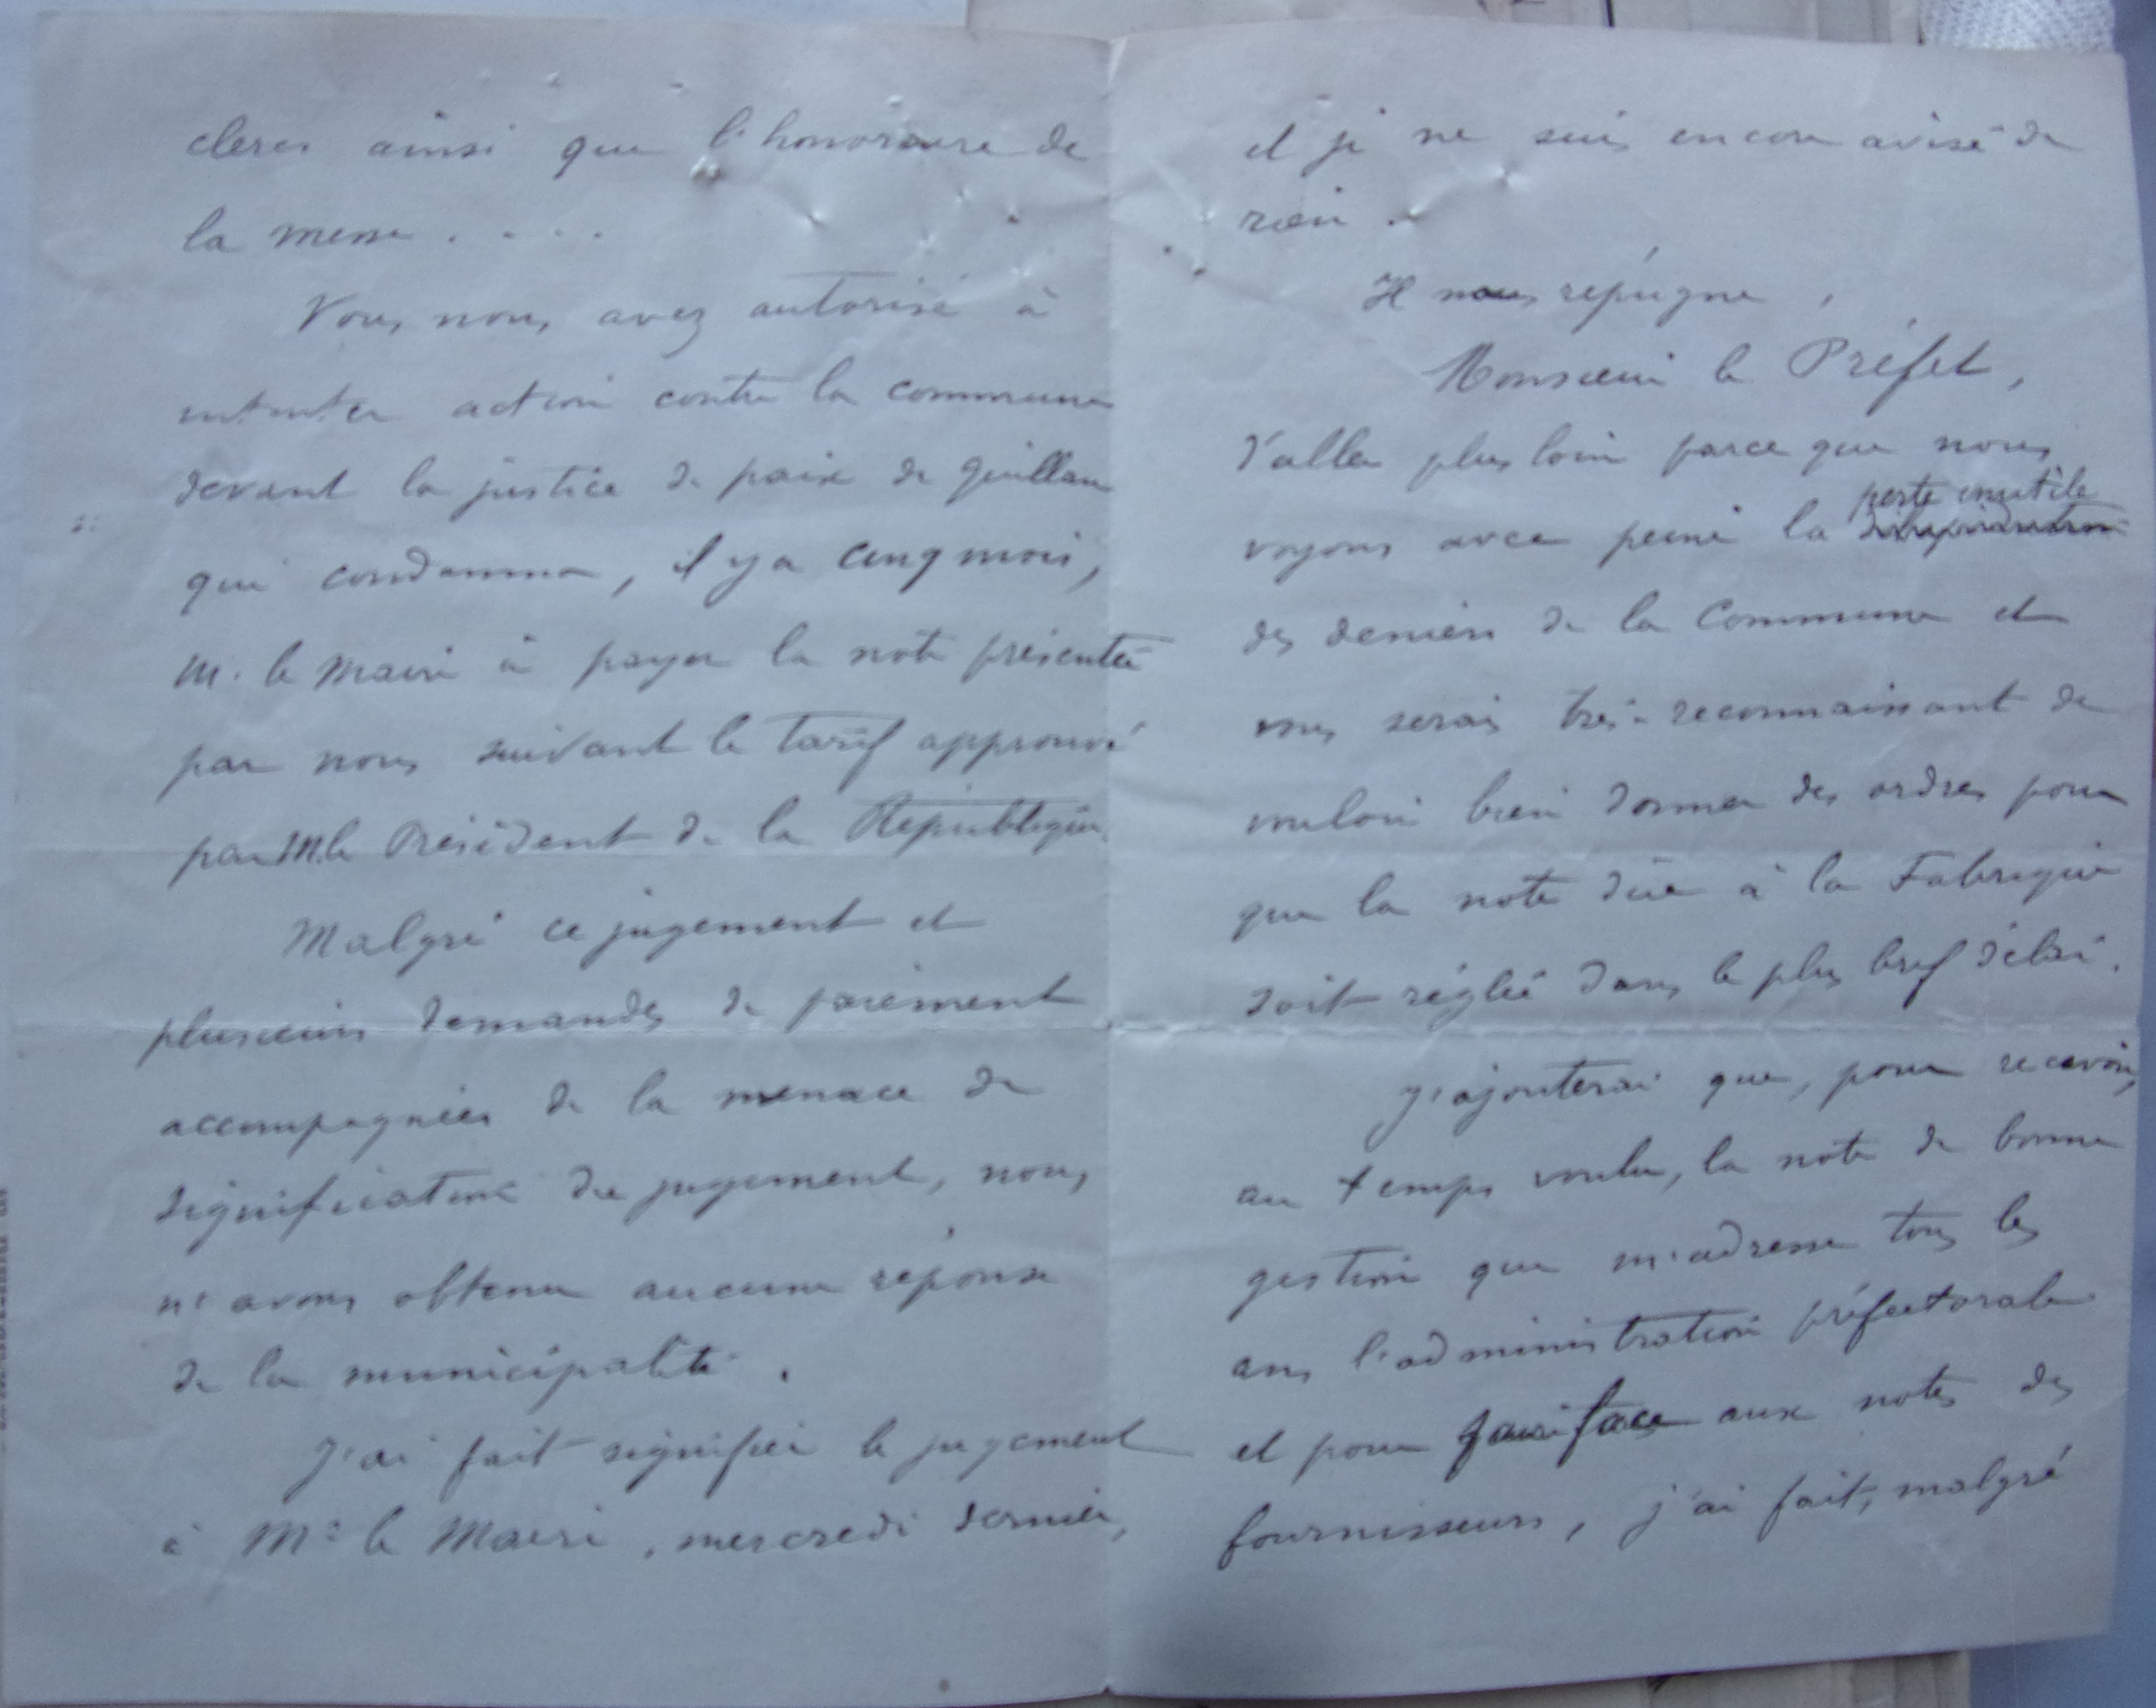 clercs ainsi que l'honoraire de
la messe . . . .
Vous nous avez autorisé à
intenter action contre la commune
devant la justice de paix de Guillau
qui condamna, il y a cinq mois,
M. le Maire à payer la note présentée
par nous suivant le tarif approuvé
par M. le Président de la République.
Malgré ce jugement et
plusieurs demandes de paiement
accompagnées de la menace de
signification du jugement, nous
n'avons obtenu aucune réponse
de la municipalité.
J'ai fait signifier le jugement
à Mr le Maire, mercredi dernier,
et je ne suis encore avisé de
rien.
Il nous répugne,
Monsieur le Préfet,
d'aller plus loin parce que nous
voyons avec peine la perte inutile
des deniers de la Commune et
vous serais très-reconnaissant de
vouloir bien donner des ordres pour
que la note dûe à la Fabrique
soit réglée dans le plus bref délai.
J'ajouterai que, pour recevoir,
au temps voulu, la note de bonne
gestion que m'adresse tous les
ans l'administration préfectorale
et pour faire face aux notes des
fournisseurs, j'ai fait, malgré